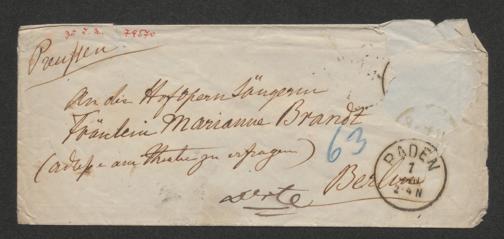 Preußen
An die Hofopern Sängerin
Fräulein Marianne Brandt
(adresse am Theater zu erfragen)
63
Berlin
BADEN
7
2-4 N